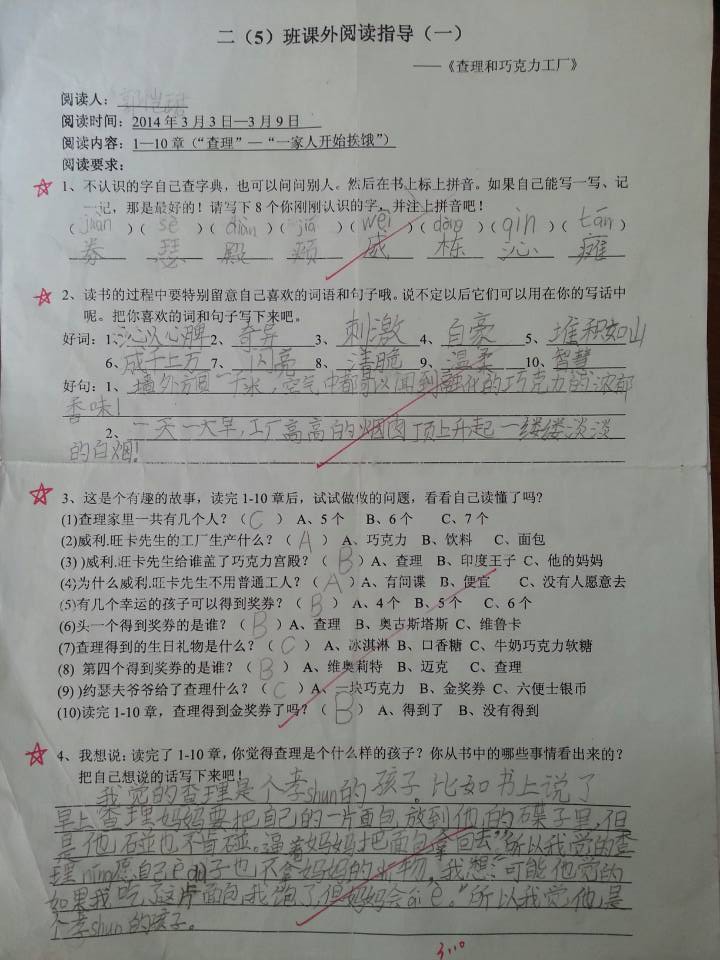 二（5）班课外阅读指导（一）
——《查理和巧克力工厂》
阅读人：
阅读时间：2014年3月3日—3月9日
阅读内容：1—10章（“查理”—“一家人开始挨饿”）
阅读要求：
1、不认识的字自己查字典，也可以问问别人。然后在书上标上拼音。如果自己能写一写、记
一记，那是最好的！请写下8个你刚刚认识的字，并注上拼音吧！
（juàn）（sè）（diàn）（jiá）（wēi）（dòng）（qìn）（tān）
券 瑟 殿 颊 威 栋 沁 瘫
2、读书的过程中要特别留意自己喜欢的词语和句子哦。说不定以后它们可以用在你的写话中
呢。把你喜欢的词和句子写下来吧。
好词：1、沁人心脾 2、奇异 3、刺激 4、自豪 5、堆积如山
6、成千上万 7、闪亮 8、清脆 9、温柔 10、智慧
好句：1、墙外方圆一千米，空气中都可以闻到融化的巧克力的浓郁
香味！
2、一天一大早，工厂高高的烟囱顶上升起一缕缕淡淡
的白烟！
3、这是个有趣的故事，读完1-10章后，试试做做的问题，看看自己读懂了吗？
(1)查理家里一共有几个人？（C） A、5个 B、6个 C、7个
(2)威利.旺卡先生的工厂生产什么？（A） A、巧克力 B、饮料 C、面包
(3) )威利.旺卡先生给谁盖了巧克力宫殿？（B）A、查理 B、印度王子 C、他的妈妈
(4)为什么威利.旺卡先生不用普通工人？（A）A、有间谍 B、便宜 C、没有人愿意去
(5)有几个幸运的孩子可以得到奖券？（B） A、4个 B、5个 C、6个
(6)头一个得到奖券的是谁？（B）A、查理 B、奥古斯塔斯 C、维鲁卡
(7)查理得到的生日礼物是什么？（C） A、冰淇淋 B、口香糖 C、牛奶巧克力软糖
(8) 第四个得到奖券的是谁？（B） A、维奥莉特 B、迈克 C、查理
(9) )约瑟夫爷爷给了查理什么？（C）A、一块巧克力 B、金奖券 C、六便士银币
(10)读完1-10章，查理得到金奖券了吗？（B） A、得到了 B、没有得到
4、我想说：读完了1-10章，你觉得查理是个什么样的孩子？你从书中的哪些事情看出来的？
把自己想说的话写下来吧！
我觉的查理是个孝shun的孩子。比如书上说了
早上查理妈妈要把自己的一片面包放到他的碟子里，但
是他碰也不肯碰。逼着妈妈把面包拿回去”，所以我觉的查
理ning愿自己è dù子也不会妈妈的食物。我想：可能他觉的
如果我吃了这片面包，我饱了，但妈妈会ái è。”所以我觉他是
个孝shun的孩子。
3.10